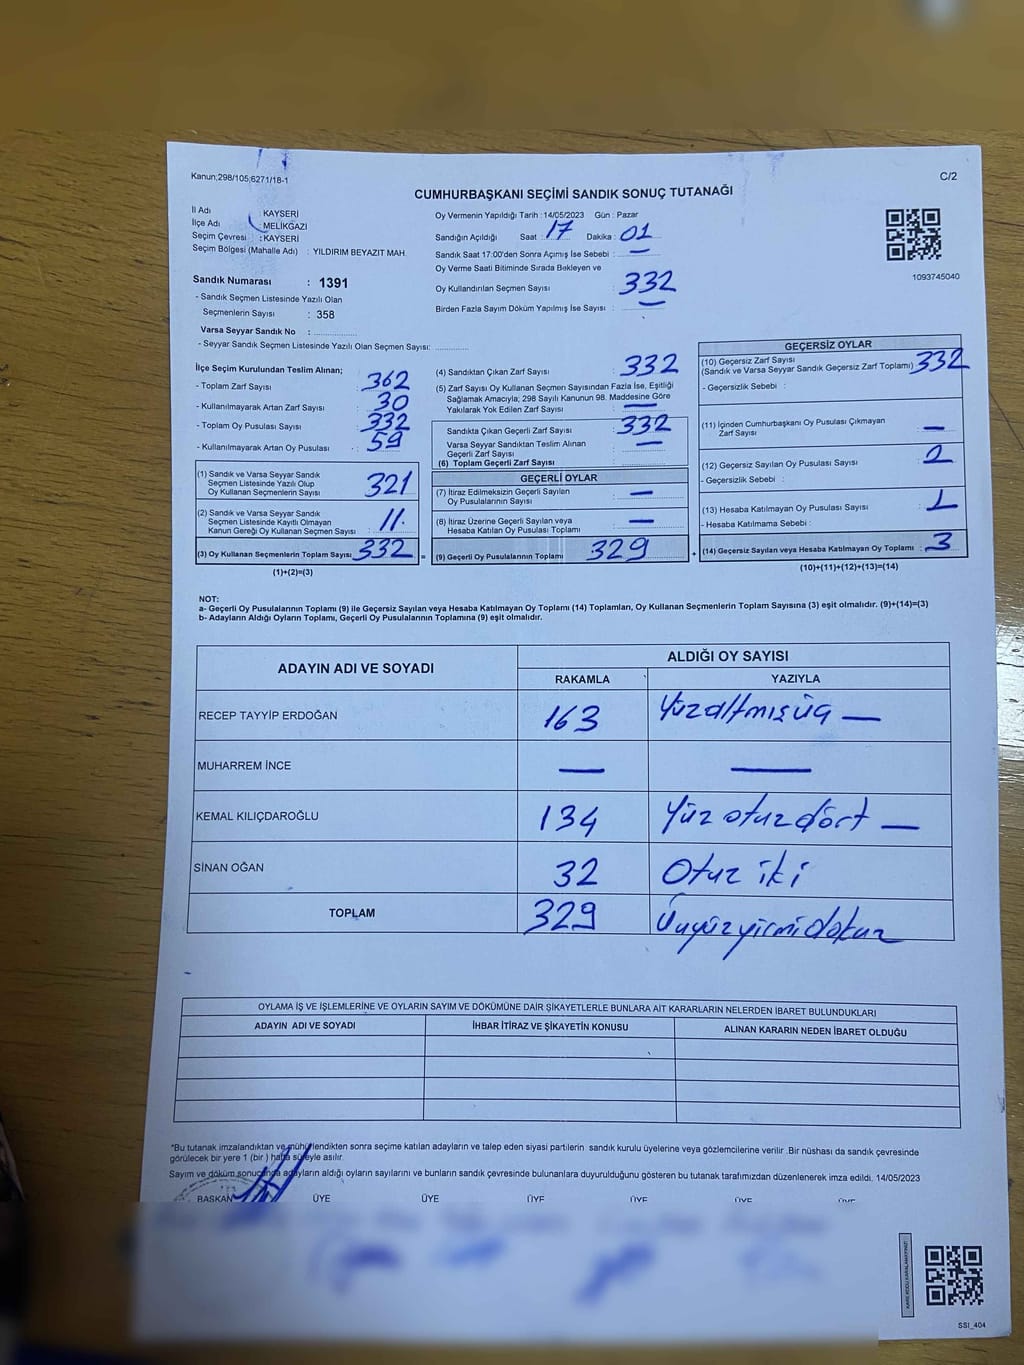 Kanun;298/105;6271/18-1
C/2
CUMHURBAŞKANI SEÇİMİ SANDIK SONUÇ TUTANAĞI
İl Adı : KAYSERİ
İlçe Adı : MELİKGAZİ
Seçim Çevresi : KAYSERİ
Seçim Bölgesi (Mahalle Adı) : YILDIRIM BEYAZIT MAH.
Sandık Numarası : 1391
- Sandık Seçmen Listesinde Yazılı Olan
Seçmenlerin Sayısı : 358
Varsa Seyyar Sandık No : ................
- Seyyar Sandık Seçmen Listesinde Yazılı Olan Seçmen Sayısı: ............
Oy Vermenin Yapıldığı Tarih : 14/05/2023 Gün : Pazar
Sandığın Açıldığı Saat : 17 Dakika : 01
Sandık Saat 17.00'den Sonra Açımış İse Sebebi : —
Oy Verme Saati Bitiminde Sırada Bekleyen ve
Oy Kullandırılan Seçmen Sayısı : 332
Birden Fazla Sayım Döküm Yapılmış İse Sayısı : —
1093745040
İlçe Seçim Kurulundan Teslim Alınan;
- Toplam Zarf Sayısı : 362
- Kullanılmayarak Artan Zarf Sayısı : 30
- Toplam Oy Pusulası Sayısı : 332
- Kullanılmayarak Artan Oy Pusulası : 59
(1) Sandık ve Varsa Seyyar Sandık
Seçmen Listesinde Yazılı Olup
Oy Kullanan Seçmenlerin Sayısı : 321
(2) Sandık ve Varsa Seyyar Sandık
Seçmen Listesinde Kayıtlı Olmayan
Kanun Gereği Oy Kullanan Seçmen Sayısı : 11
(3) Oy Kullanan Seçmenlerin Toplam Sayısı : 332 =
(1)+(2)=(3)
(4) Sandıktan Çıkan Zarf Sayısı : 332
(5) Zarf Sayısı Oy Kullanan Seçmen Sayısından Fazla İse, Eşitliği
Sağlamak Amacıyla; 298 Sayılı Kanunun 98. Maddesine Göre
Yakılarak Yok Edilen Zarf Sayısı : —
Sandıkta Çıkan Geçerli Zarf Sayısı : 332
Varsa Seyyar Sandıktan Teslim Alınan
Geçerli Zarf Sayısı : —
(6) Toplam Geçerli Zarf Sayısı :
GEÇERLİ OYLAR
(7) İtiraz Edilmeksizin Geçerli Sayılan
Oy Pusulalarının Sayısı : —
(8) İtiraz Üzerine Geçerli Sayılan veya
Hesaba Katılan Oy Pusulası Toplamı : —
(9) Geçerli Oy Pusulalarının Toplamı : 329 +
GEÇERSİZ OYLAR
(10) Geçersiz Zarf Sayısı
(Sandık ve Varsa Seyyar Sandık Geçersiz Zarf Toplamı) : 332
- Geçersizlik Sebebi :
(11) İçinden Cumhurbaşkanı Oy Pusulası Çıkmayan
Zarf Sayısı : —
(12) Geçersiz Sayılan Oy Pusulası Sayısı : 2
- Geçersizlik Sebebi :
(13) Hesaba Katılmayan Oy Pusulası Sayısı : 1
- Hesaba Katılmama Sebebi :
(14) Geçersiz Sayılan veya Hesaba Katılmayan Oy Toplamı : 3
(10)+(11)+(12)+(13)=(14)
NOT:
a- Geçerli Oy Pusulalarının Toplamı (9) ile Geçersiz Sayılan veya Hesaba Katılmayan Oy Toplamı (14) Toplamları, Oy Kullanan Seçmenlerin Toplam Sayısına (3) eşit olmalıdır. (9)+(14)=(3)
b- Adayların Aldığı Oyların Toplamı, Geçerli Oy Pusulalarının Toplamına (9) eşit olmalıdır.
ADAYIN ADI VE SOYADI ALDIĞI OY SAYISI
RAKAMLA YAZIYLA
RECEP TAYYİP ERDOĞAN 163 Yüzaltmışüç —
MUHARREM İNCE — —
KEMAL KILIÇDAROĞLU 134 Yüz otuz dört —
SİNAN OĞAN 32 Otuz iki
TOPLAM 329 Üçyüzyirmidokuz
OYLAMA İŞ VE İŞLEMLERİNE VE OYLARIN SAYIM VE DÖKÜMÜNE DAİR ŞİKAYETLERLE BUNLARA AİT KARARLARIN NELERDEN İBARET BULUNDUKLARI
ADAYIN ADI VE SOYADI İHBAR İTİRAZ VE ŞİKAYETİN KONUSU ALINAN KARARIN NEDEN İBARET OLDUĞU
*Bu tutanak imzalandıktan ve mühürlendikten sonra seçime katılan adayların ve talep eden siyasi partilerin sandık kurulu üyelerine veya gözlemcilerine verilir .Bir nüshası da sandık çevresinde
görülecek bir yere 1 (bir ) hafta süreyle asılır.
Sayım ve döküm sonucunda adayların aldığı oyların sayılarını ve bunların sandık çevresinde bulunanlara duyurulduğunu gösteren bu tutanak tarafımızdan düzenlenerek imza edildi. 14/05/2023
BAŞKAN ÜYE ÜYE ÜYE ÜYE ÜYE ÜYE
KARE KODU KARALAMAYINIZ!
SSI_404